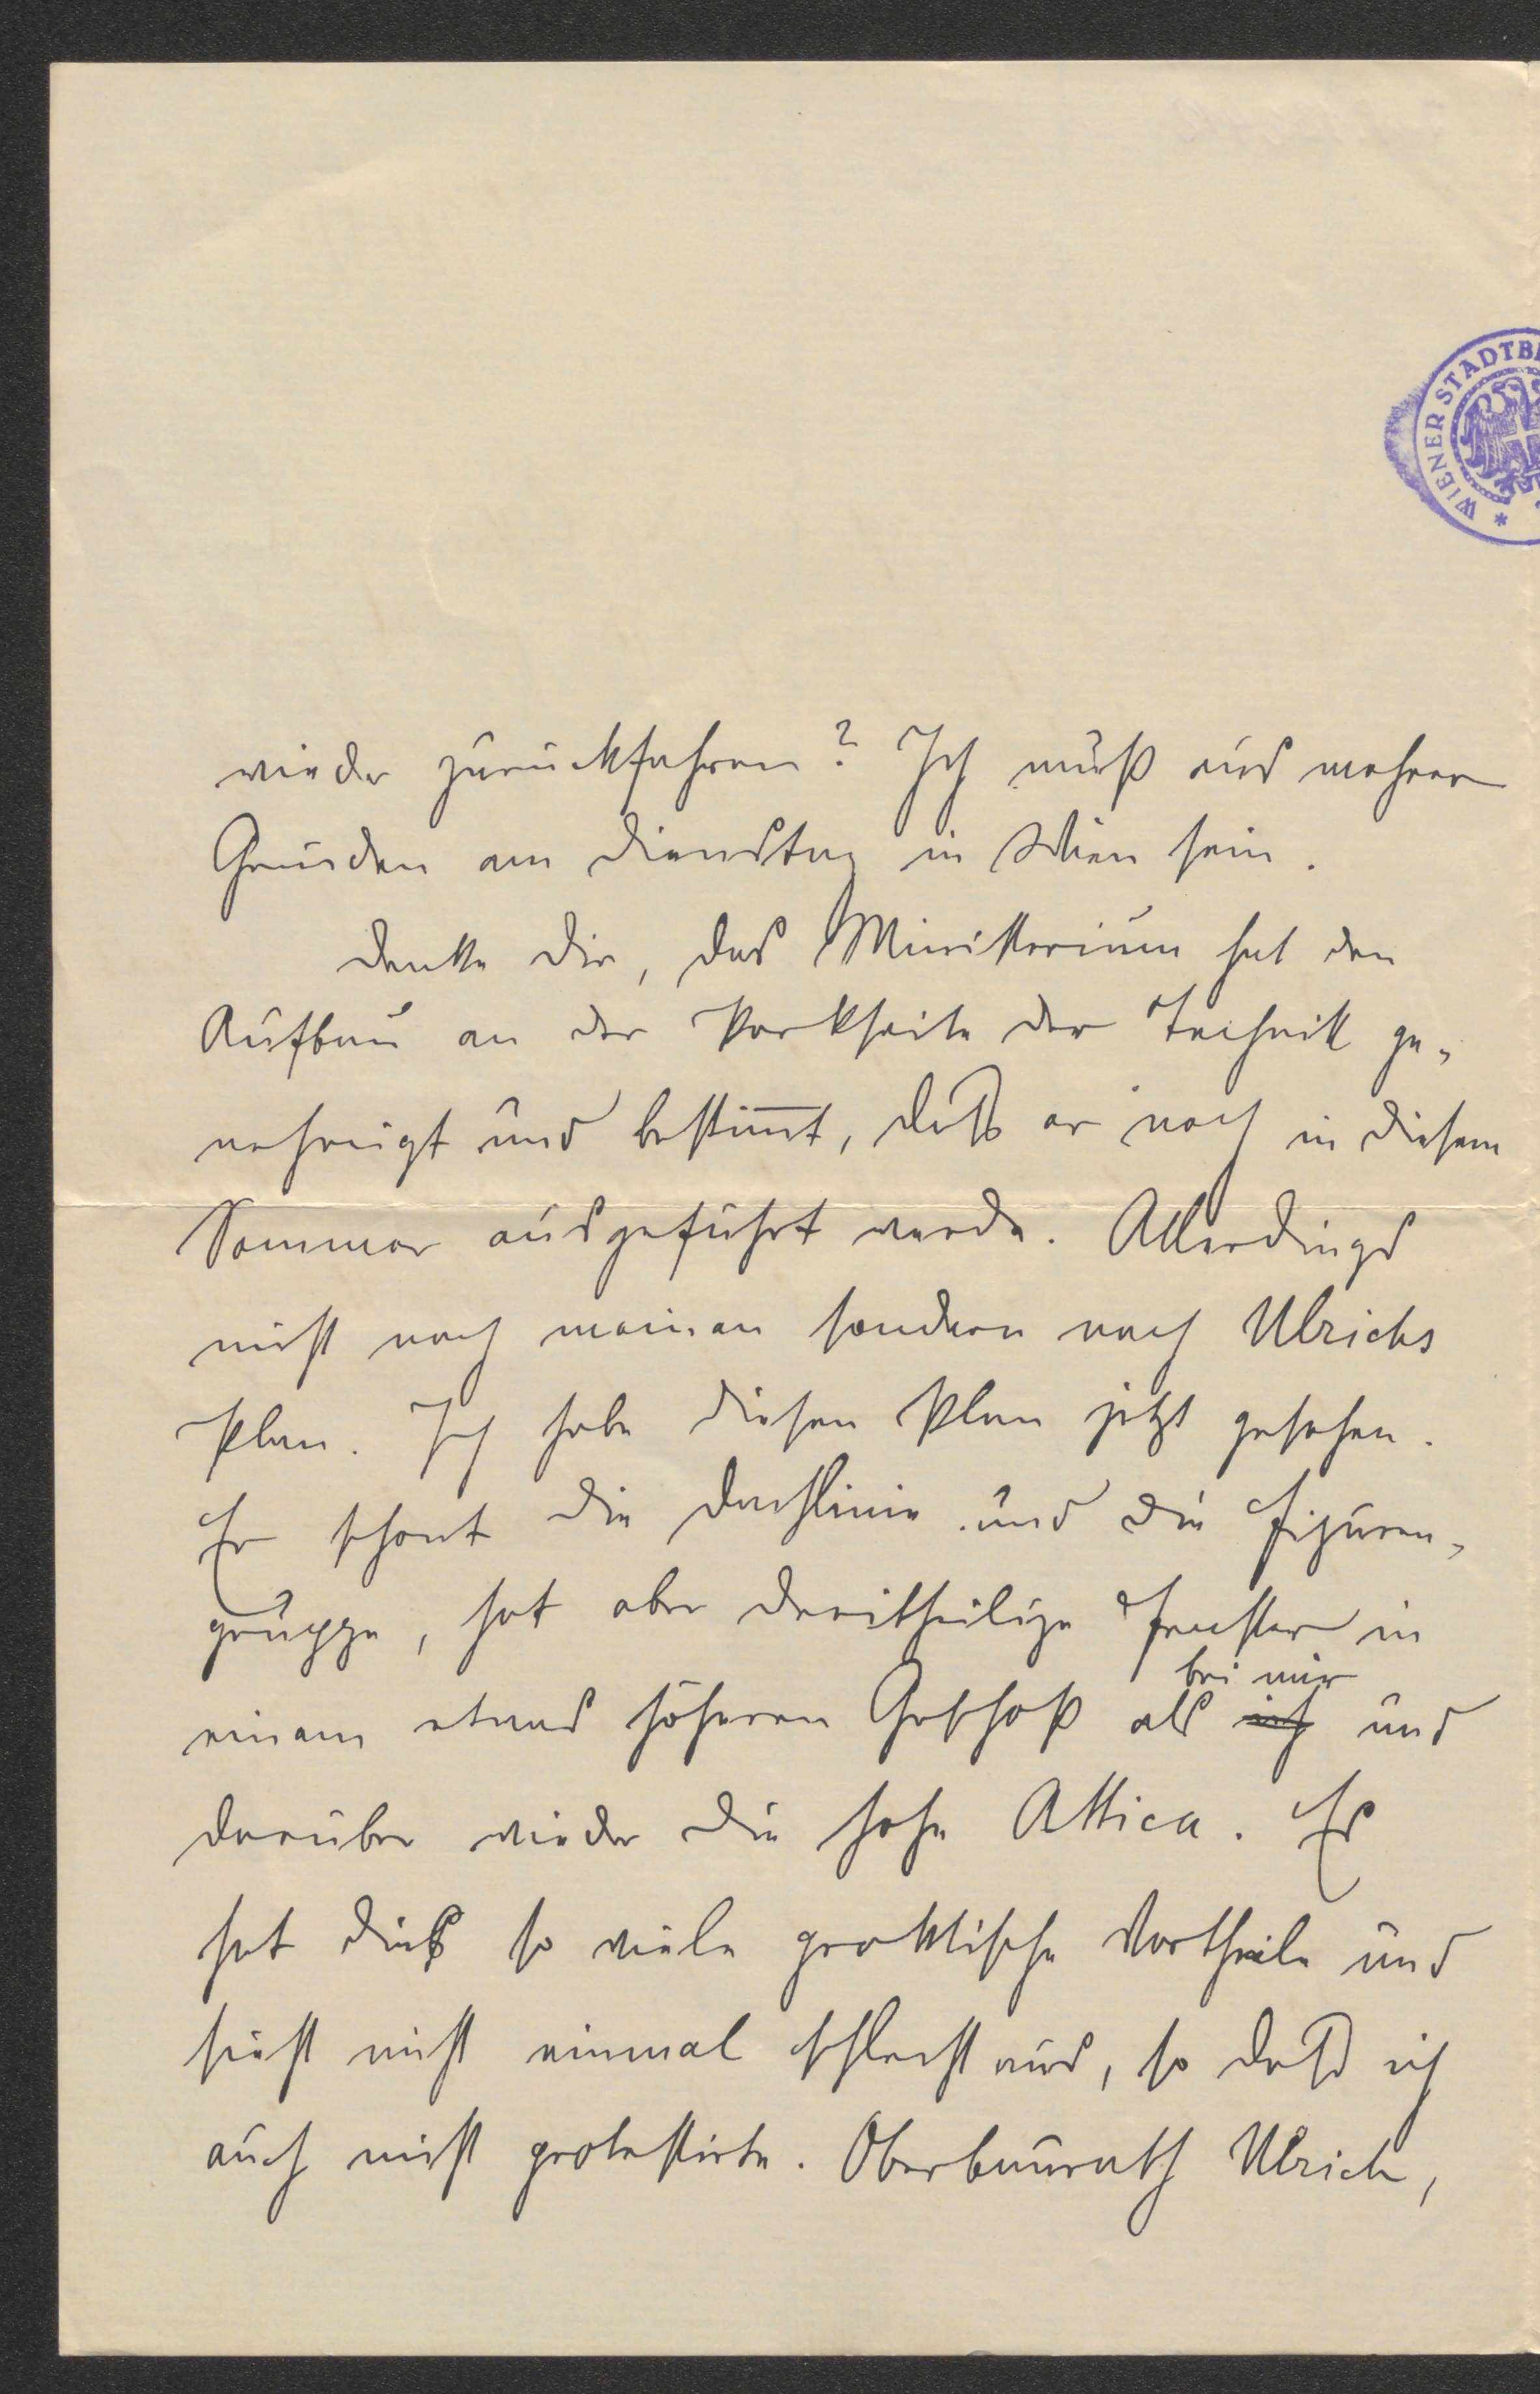 WIENER STADTB
wieder zurückfahren? Ich muß aus mehrer
Gründen am Dienstag in Wien sein.
Denke Dir, das Ministerium hat den
Aufbau an der Parkseite der Technik ge-
nehmigt und bestimt, daß er noch in diesem
Sommer ausgeführt werde. Allerdings
nicht nach meinen sondern nach Ulrichs
Plan. Ich habe diesen Plan jetzt gesehen.
Er schont die Dachlinie und die Figuren-
gruppe, hat aber dreitheilige Fenster in
bei mir
einem etwas höheren Geschoß als ich und
darüber wieder die hohe Attica. Es
hat dieß so viele praktische Vortheile und
sieht nicht einmal schlecht aus, so daß ich
auch nicht protestirte. Oberbaurath Ulrich,